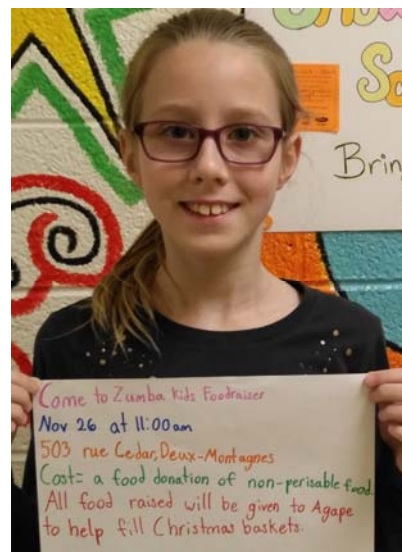 Brin
Come to Zumba Kids Foodraiser
Nov 26 at 11:00am
503 rue Cedar, Deux-Montagnes
Cost= a food donation of non-perisable food.
All food raised will be given to Agape
to help fill Christmas baskets.